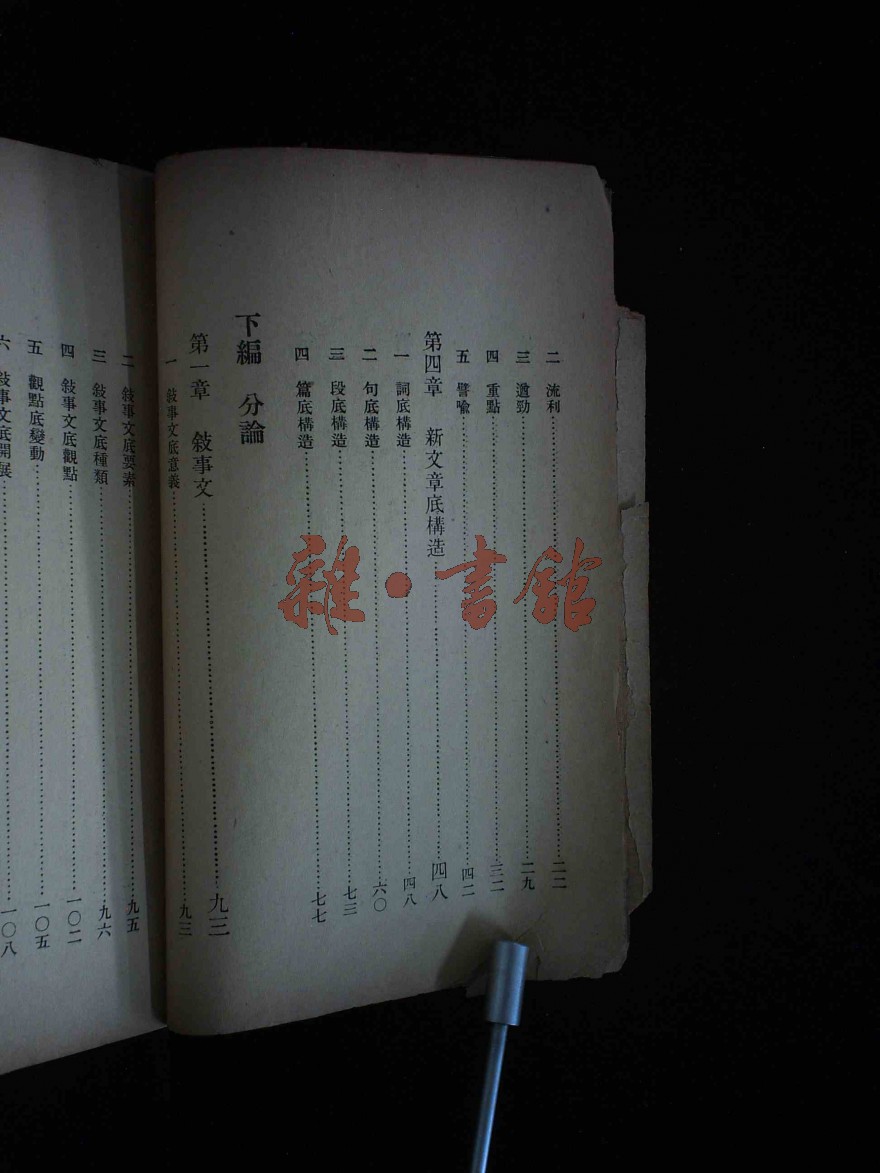 二　流利……二二
三　遒勁……二九
四　重點……三二
五　譬喻……四二
第四章　新文章底構造……四八
一　詞底構造……四八
二　句底構造……六〇
三　段底構造……七三
四　篇底構造……七七
下編　分論
第一章　敍事文……九三
一　敍事文底意義……九三
二　敍事文底要素……九五
三　敍事文底種類……九六
四　敍事文底觀點……一〇二
五　觀點底變動……一〇五
六　敍事文底開展……一〇八
雜·書館